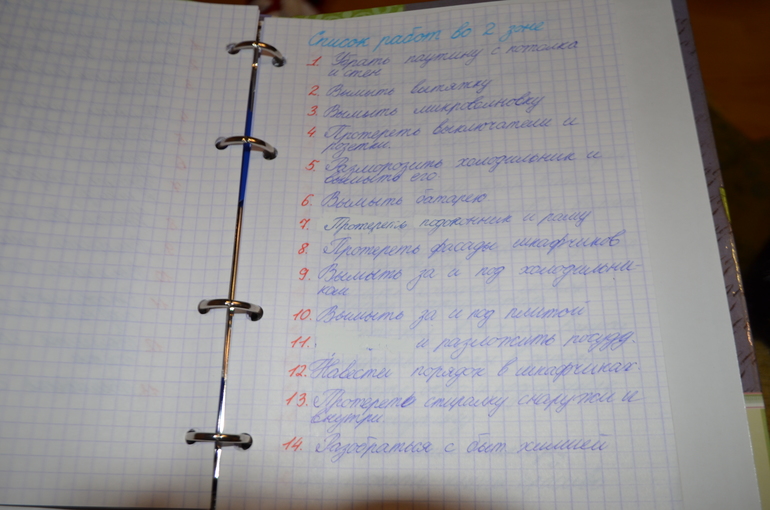 Список работ во 2 зоне
1. Убрать паутину с потолка
и стен
2. Вымыть вытяжку
3. Вымыть микроволновку
4. Протереть выключатели и
розетки
5. Разморозить холодильник и
вымыть его
6. Вымыть батарею
7. Протереть подоконник и раму
8. Протереть фасады шкафчиков
9. Вымыть за и под холодильни-
ком
10. Вымыть за и под плитой
11. и разложить посуду.
12. Навести порядок в шкафчиках.
13. Протереть стиралку снаружи и
внутри
14. Разобраться с быт химией